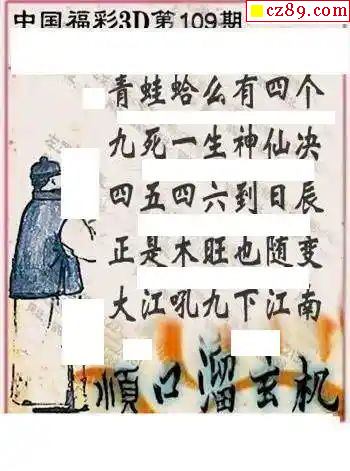 cz89.com
中国福彩3D第109期
青蛙蛤么有四个
九死一生神仙决
四五四六到日辰
正是木旺也随变
大江吼九下江南
顺口溜玄机